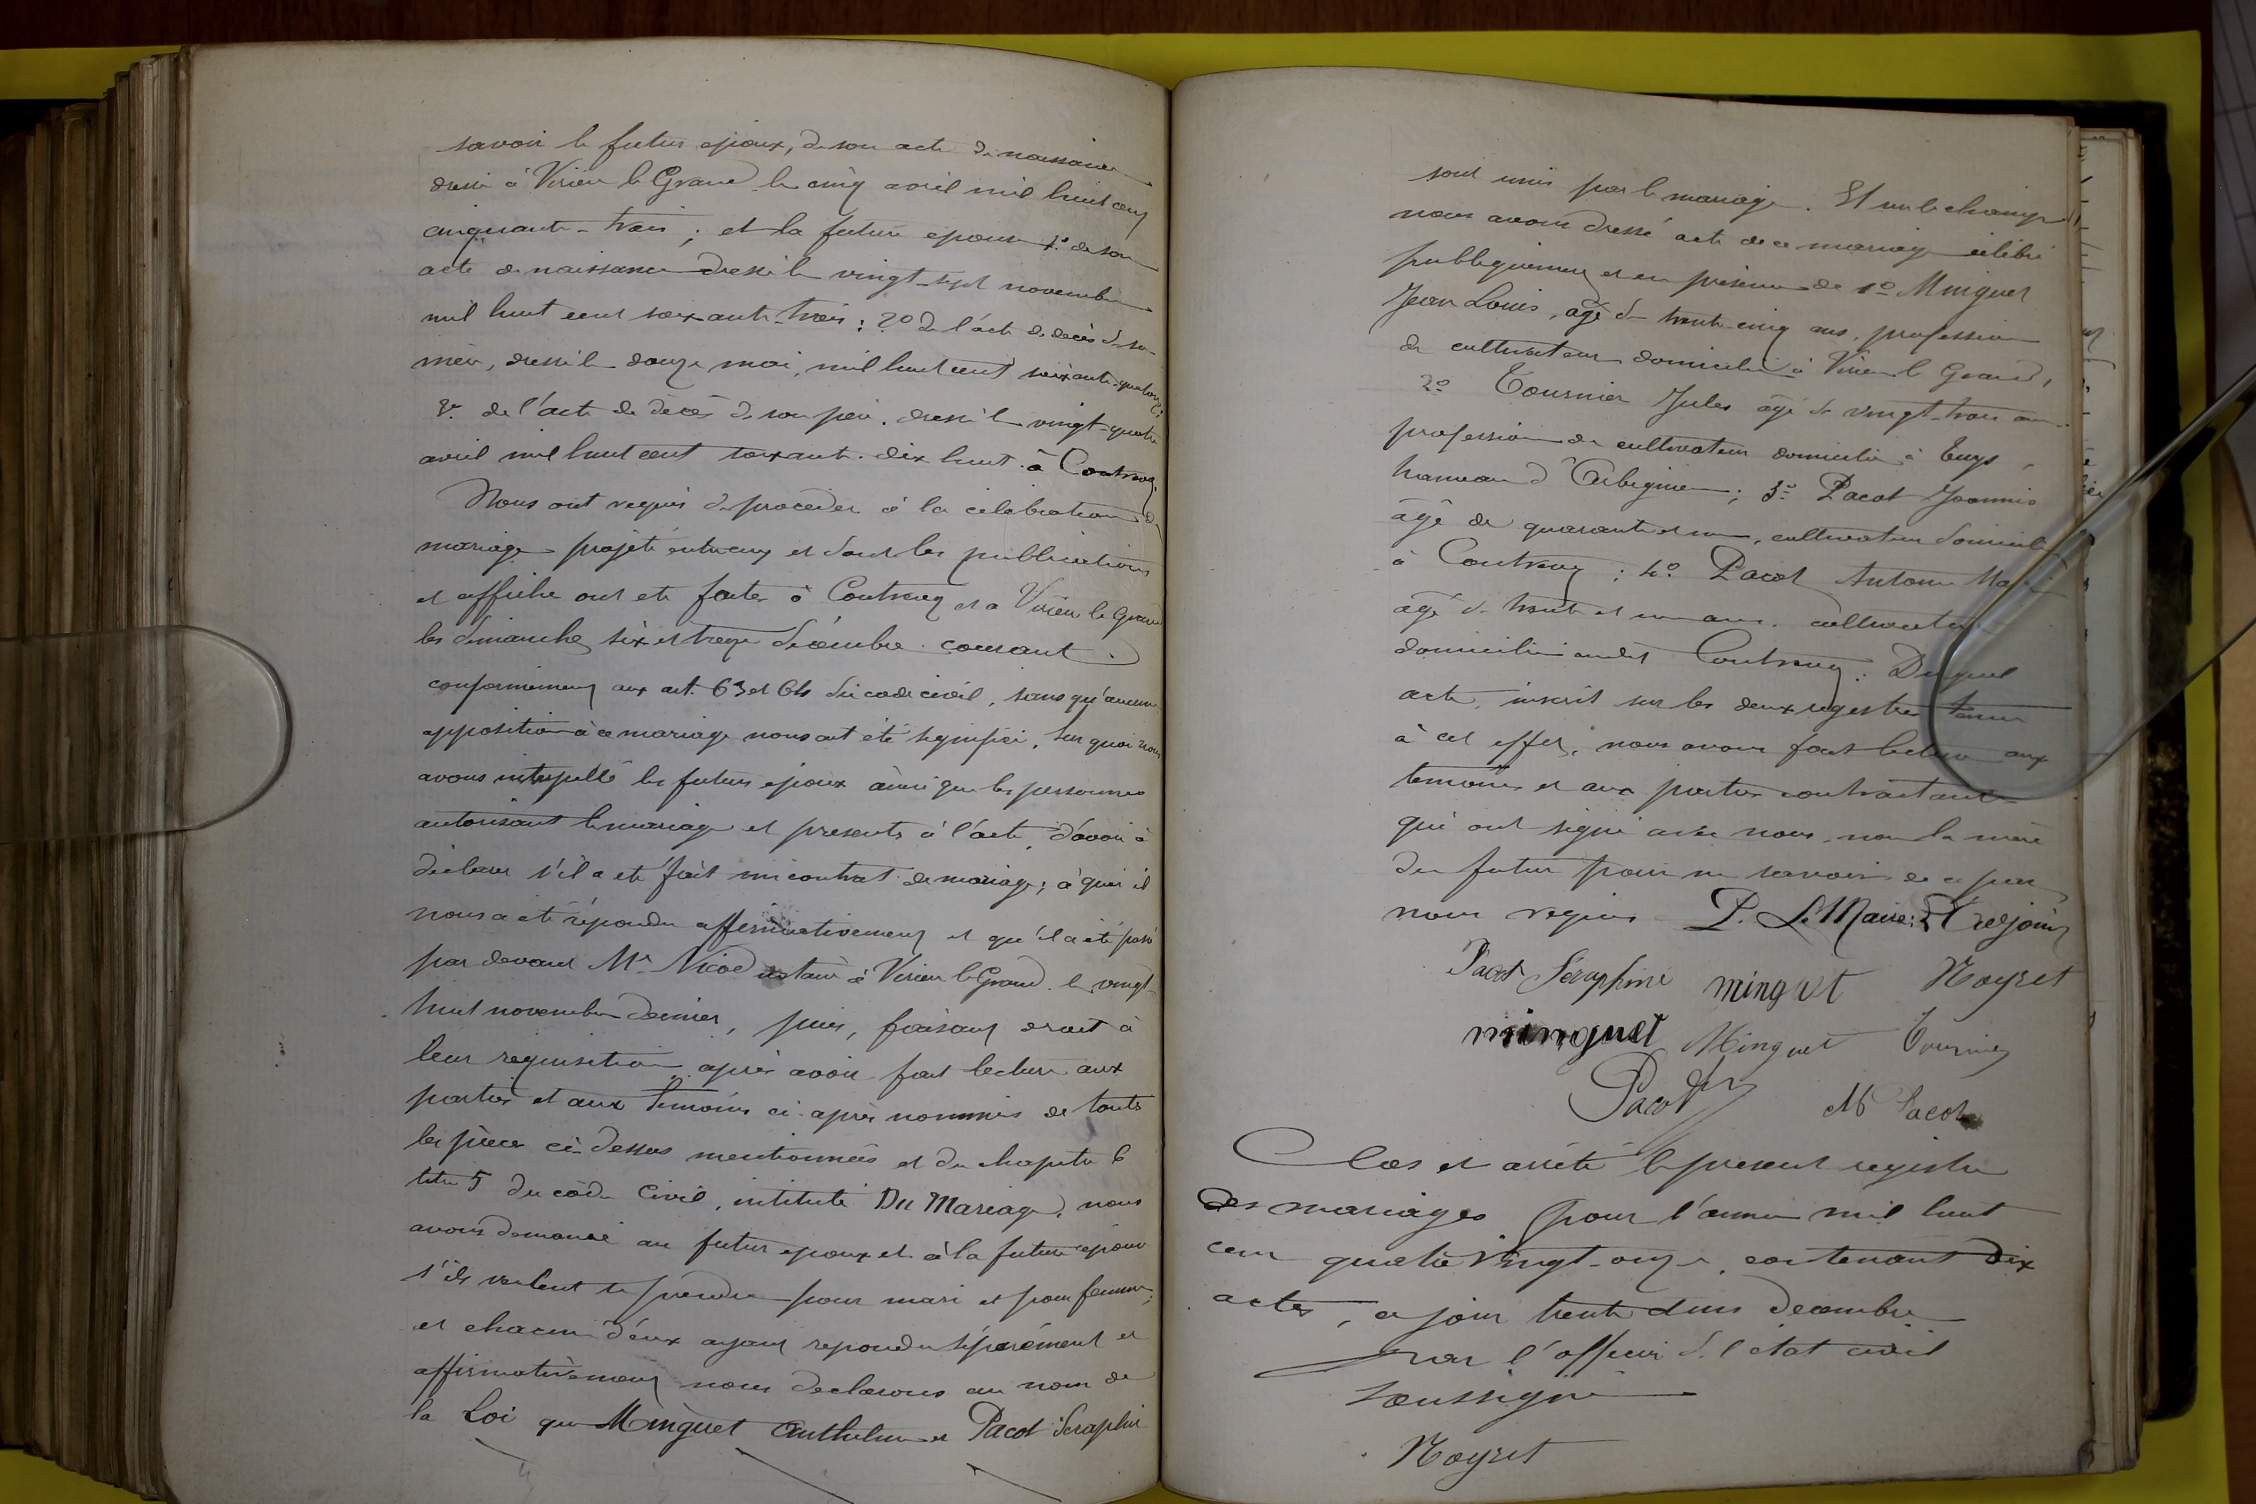 savoir le futur époux, de son acte de naissance
dressé à Virieu le Grand le cinq avril mil huit cent
cinquante-trois ; et la future épouse 1º de son
acte de naissance dressé le vingt-sept novembre
mil huit cent soixante-trois ; 2º de l'acte de décès de sa
mère, dressé le douze mai, mil huit cent soixante-quatorze ;
3º de l'acte de décès de son père, dressé le vingt-quatre
avril mil huit cent soixante-dix huit à Contrevoz
Nous ont requis de procéder à la célébration du
mariage projeté entre eux et dont les publications
et affiche ont été faites à Contrevoz et à Virieu le Grand
les dimanches six et treize décembre courant
conformément aux art. 63 et 64 du code civil, sans qu'aucune
opposition à ce mariage nous ait été signifiée, sur quoi nous
avons interpellé les futurs époux ainsi que les personnes
autorisant le mariage et présents à l'acte, d'avoir à
déclarer s'il a été fait un contrat de mariage ; à quoi il
nous a été répondu affirmativement et qu'il a été passé
par devant Mr Nicod notaire à Virieu le Grand le vingt
huit novembre dernier, puis, faisant droit à
leur réquisition après avoir fait lecture aux
parties et aux témoins ci-après nommés de toutes
les pièces ci-dessus mentionnées et du chapitre 6
titre 5 du code Civil, intitulé Du Mariage, nous
avons demandé au futur époux et à la future épouse
s'ils veulent se prendre pour mari et pour femme ;
et chacun d'eux ayant répondu séparément et
affirmativement nous déclarons au nom de
la Loi que Minguet Anthelme et Pacot Séraphie
sont unis par le mariage. Et sur le champ
nous avons dressé acte de ce mariage célébré
publiquement et en présence de 1º Minguet
Jean Louis, âgé de trente-cinq ans, profession
de cultivateur domicilié à Virieu le Grand,
2º Tournier Jules âgé de vingt-trois ans
profession de cultivateur domicilié à Cuzs,
hameau d'Arbignieu ; 3º Pacot Joannis
âgé de quarante et un, cultivateur domicilié
à Contrevoz ; 4º Pacot Antoine
âgé de trente et un ans, cultivateur
domicilié audit Contrevoz. Duquel
acte, inscrit sur les deux registres tenus
à cet effet, nous avons fait lecture aux
témoins et aux parties contractantes
qui ont signé avec nous, non la mère
du futur pour ne savoir de ce par
nous requis P. Le Maire :
Pacot Séraphine minguet Noyret
minguet Minguet Tournier
Pacot M Pacot
Clos et arrêté le présent registre
des mariages pour l'année mil huit
cent quatre vingt-onze, contenant dix
actes, ce jour trente et un décembre
par l'officier de l'état civil
soussigné
Noyret